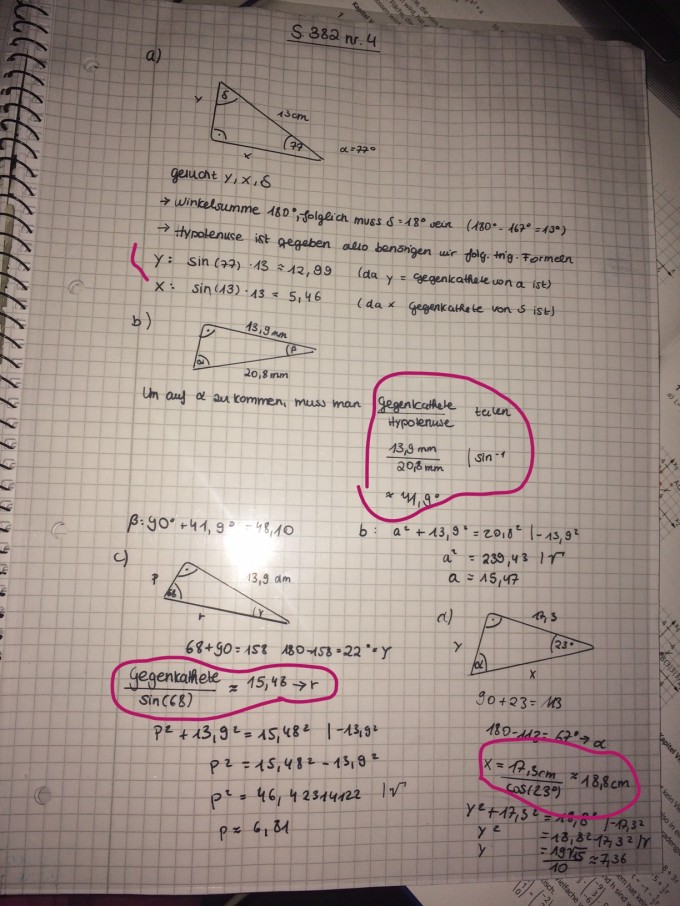 S. 382 nr. 4
a)
y
δ
13cm
77
x
α=77°
gesucht y, x, δ
→ Winkelsumme 180°, folglich muss δ=18° sein (180° - 167° = 13°)
→ Hypotenuse ist gegeben also benötigen wir folg. trig. Formeln
y: sin(77) · 13 = 12,99 (da y = gegenkathete von α ist)
x: sin(13) · 13 = 5,46 (da x gegenkathete von δ ist)
b)
13,9mm
α
β
20,8mm
Um auf α zu kommen, muss man Gegenkathete / Hypotenuse teilen
13,9 mm / 20,8 mm | sin⁻¹
≈ 41,9°
β: 90° + 41,9° = 48,10
b: a² + 13,9² = 20,8² | -13,9²
a² = 239,43 | √
a = 15,47
c)
p
13,9 dm
68
r
γ
68 + 90 = 158 180 - 158 = 22° = γ
Gegenkathete / sin(68) ≈ 15,48 → r
p² + 13,9² = 15,48² | -13,9²
p² = 15,48² - 13,9²
p² = 46,42314122 | √
p ≈ 6,81
d)
17,3
y
23°
α
x
90 + 23 = 113
180 - 113 = 67° → α
x = 17,3cm / cos(23°) ≈ 18,8cm
y² + 17,3² = 18,8² | -17,3²
y² = 18,8² 17,3² | √
y = 19√15 / 10 ≈ 7,36